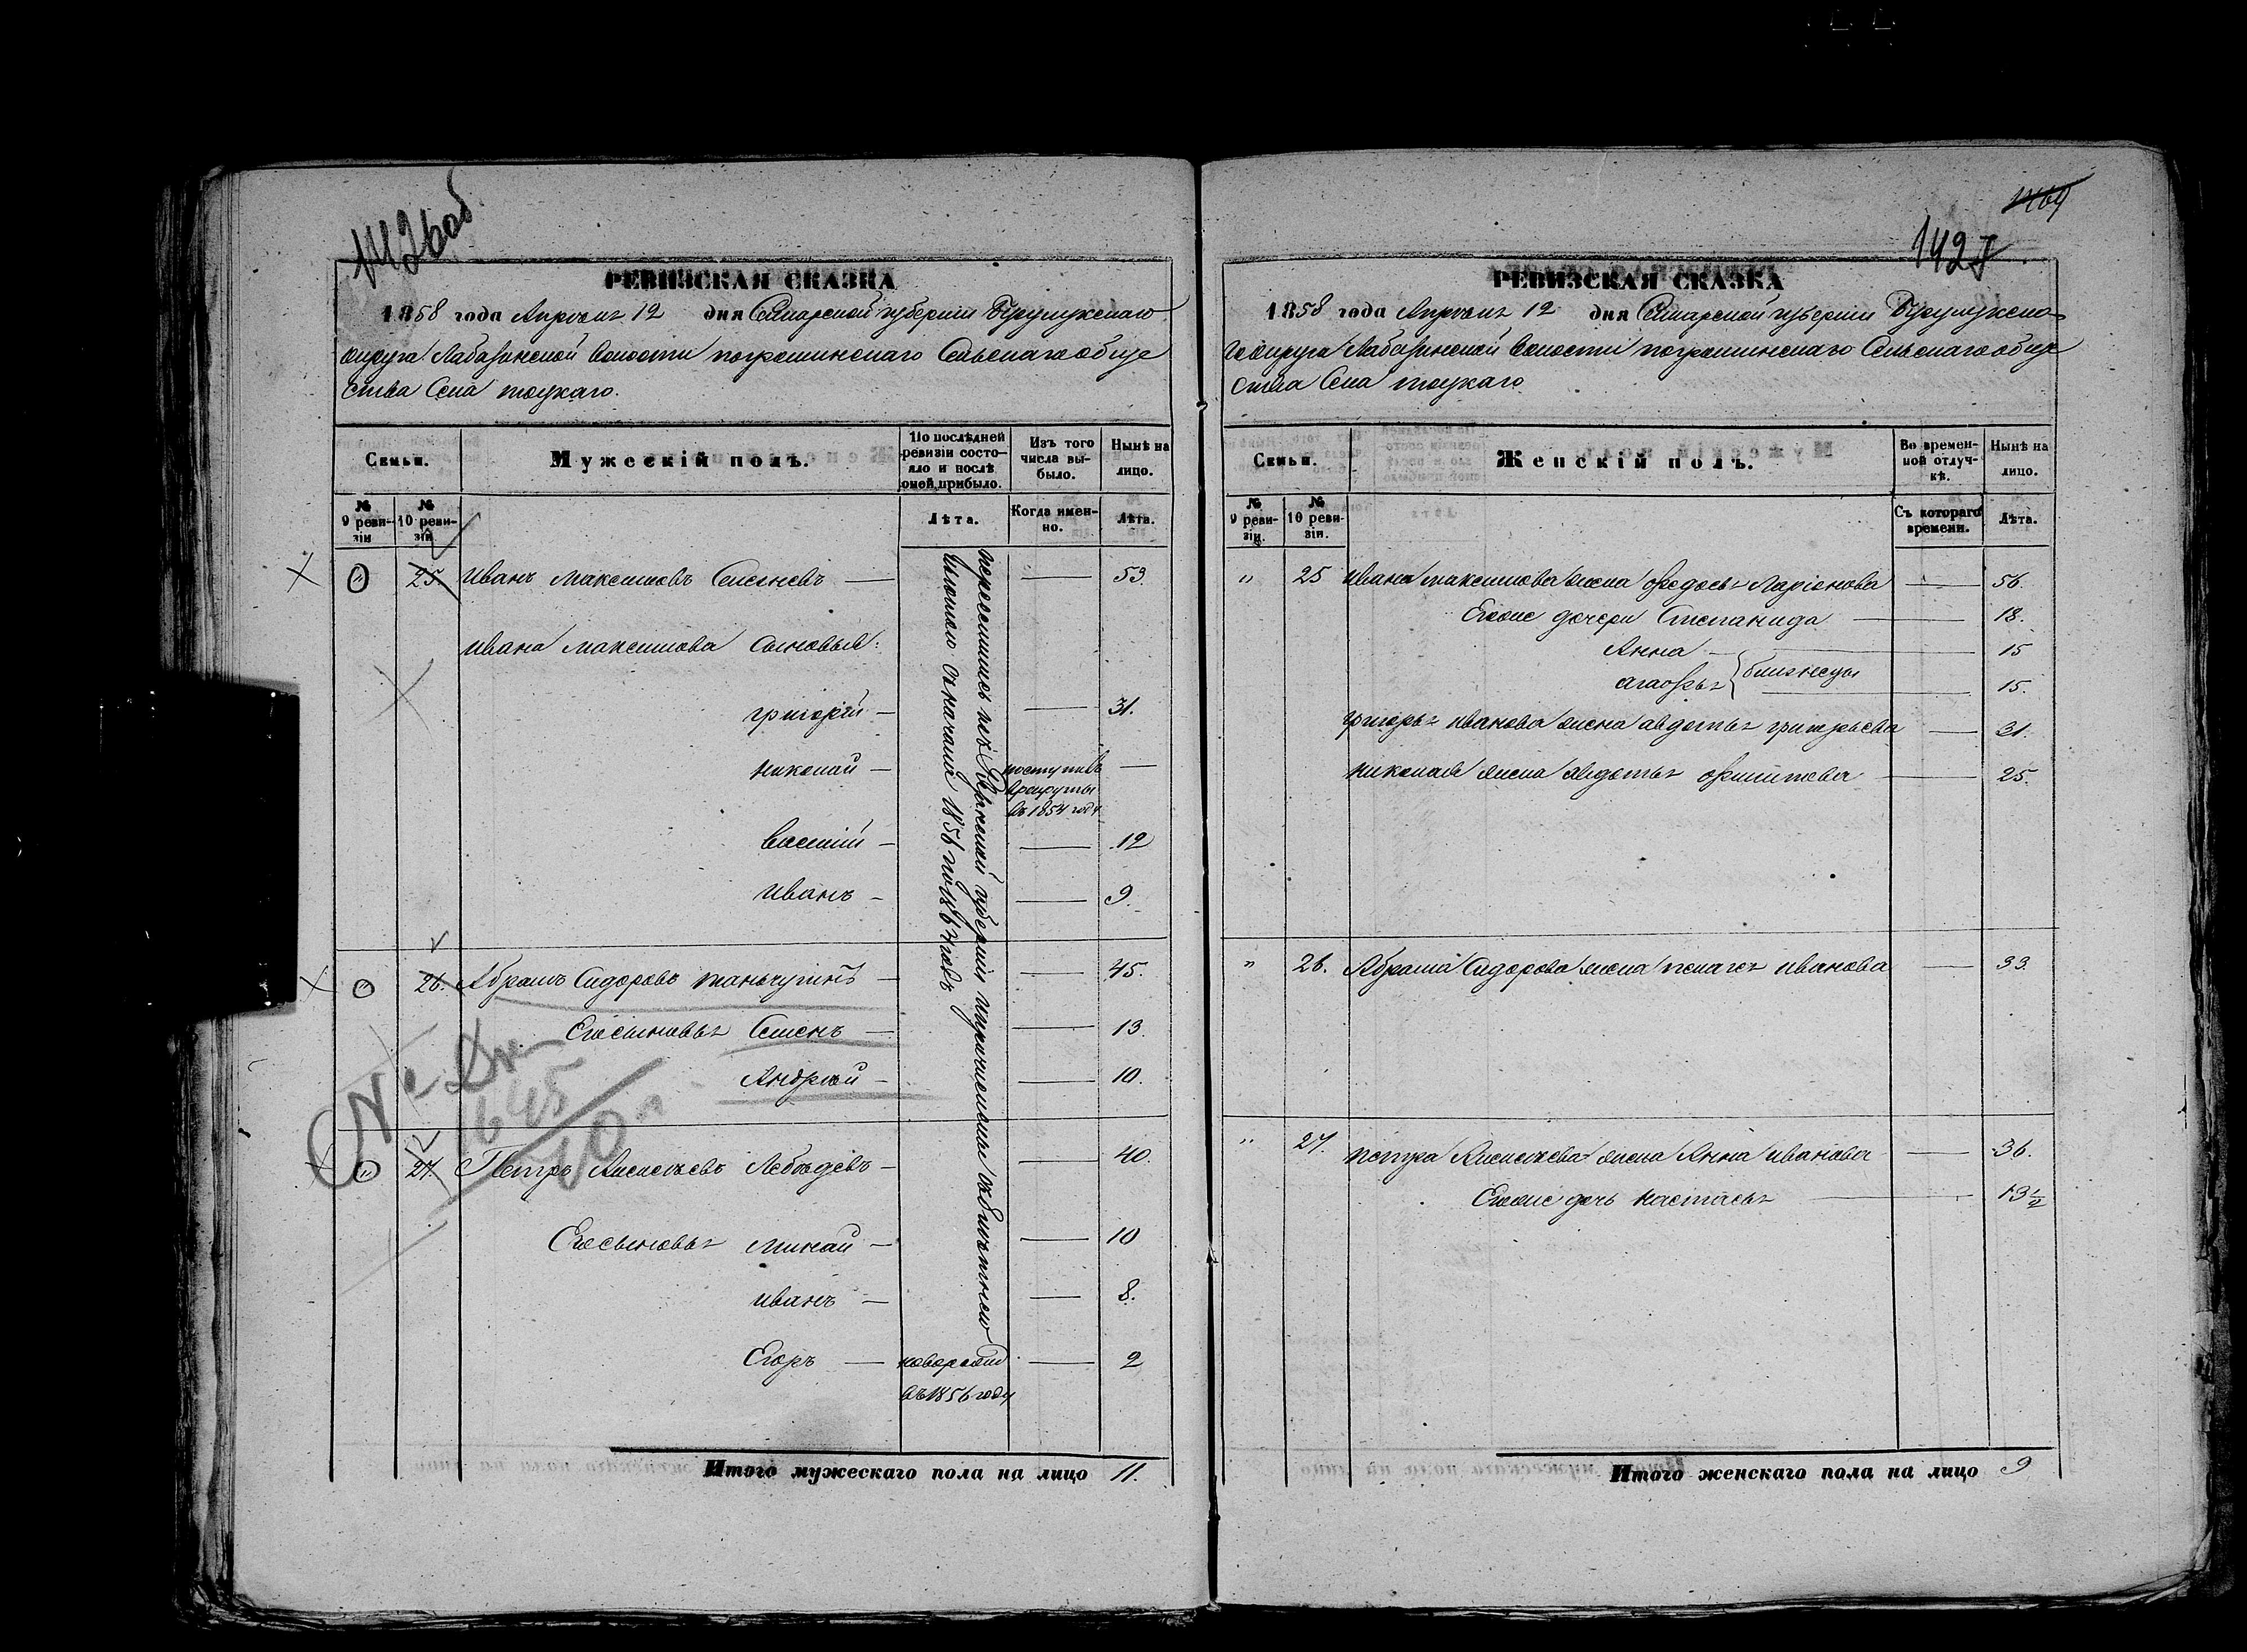 1426 об
РЕВИЗСКАЯ СКАЗКА
1858 года Апреля 12 дня Самарской губернии Бузулукскаго
округа Лабазинской Волости погроминскаго Сельскаго обще
ства Села тоцкаго.
Семьи.
Мужескій полъ.
По послѣдней
ревизіи состо-
яло и послѣ
оной прибыло.
Изъ того
числа вы-
было.
Нынѣ на
лицо.
№
9 реви-
зіи
№
10 реви-
зіи
Лѣта.
Когда имен-
но.
Лѣта.
25. Иванъ Максимовъ — 53.
Ивана Максимова сыновья:
григорій — 31.
николай — поступилъ
в рекруты
въ 1854 году —
василій — 12
иванъ — 9.
26. Абрамъ Сидоровъ — 45.
Его сыновья Семенъ — 13.
Андрей — 10.
27. Петръ Алексеевъ Лебедевъ — 40.
Его сыновья минай — 10
иванъ — 8.
Егоръ — новорожд — 2
въ 1856 году
переселились изъ губерніи
съ начала 1856 года
Итого мужескаго пола на лицо 11.
1427
РЕВИЗСКАЯ СКАЗКА
1858 года Апреля 12 дня Самарской губерніи Бузулукска-
го округа Лабазинской Волости погроминскаго Сельскаго обще
ства Села тоцкаго
Семьи.
Женскій полъ.
Во времен-
ной отлуч-
кѣ.
Нынѣ на
лицо.
№
9 реви-
зіи.
№
10 реви-
зіи.
Съ котораго
времени.
Лѣта.
" 25 ивана максимова жена федосья Ларіонова — 56.
Егоже дочери Степанида — 18.
Анна — 15
агафья } близнецы — 15.
григорья иванова жена авдотья григорьева — 31.
николая жена авдотья филипова — 25.
" 26. Абрама Сидорова жена пелагея иванова — 33.
" 27. петра Алексеева жена Анна иванова — 36.
Егоже дочь настасья — 13 1/2
Итого женскаго пола на лицо 9